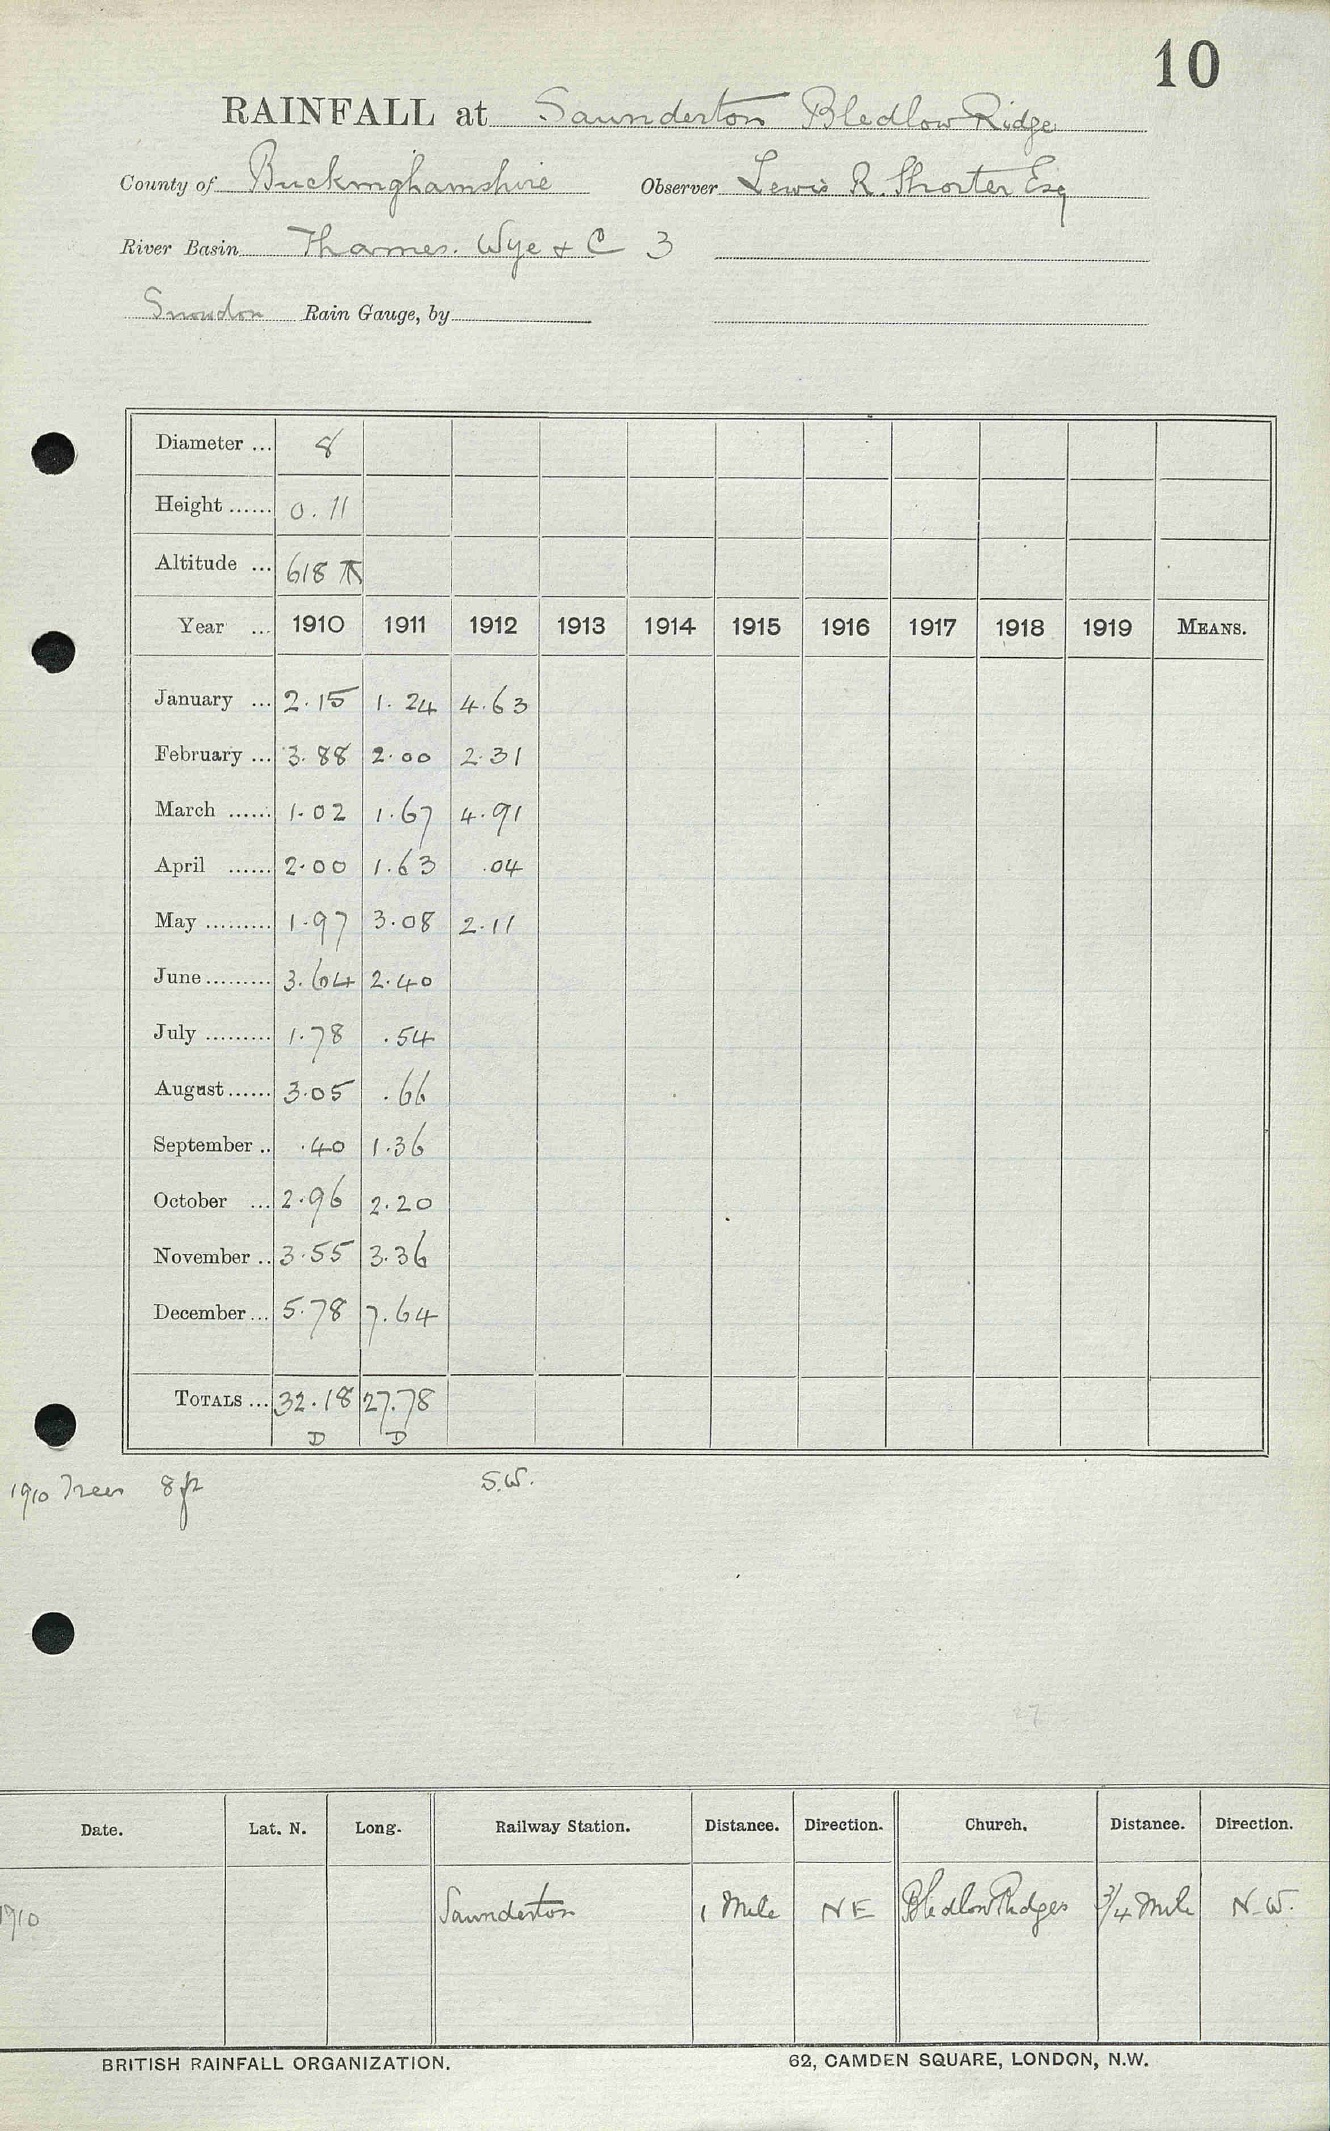 10
RAINFALL at Saunderton Bledlow Ridge
County of Buckinghamshire Observer Lewis R. Shorter Esq
River Basin Thames. Wye & C 3
Snowdon Rain Gauge, by
Diameter ... 8
Height ...... 0.11
Altitude ... 618
Year ... 1910 1911 1912 1913 1914 1915 1916 1917 1918 1919 MEANS.
January ... 2.15 1.24 4.63
February ... 3.88 2.00 2.31
March ...... 1.02 1.67 4.91
April ...... 2.00 1.63 .04
May ......... 1.97 3.08 2.11
June ......... 3.64 2.40
July ......... 1.78 .54
August ...... 3.05 .66
September .. .40 1.36
October ... 2.96 2.20
November .. 3.55 3.36
December ... 5.78 7.64
TOTALS ... 32.18 27.78
D D
1910 Trees 8ft S.W.
Date. Lat. N. Long. Railway Station. Distance. Direction. Church. Distance. Direction.
1910 Saunderton 1 Mile NE Bledlow Ridges 3/4 Mile N.W.
BRITISH RAINFALL ORGANIZATION. 62, CAMDEN SQUARE, LONDON, N.W.